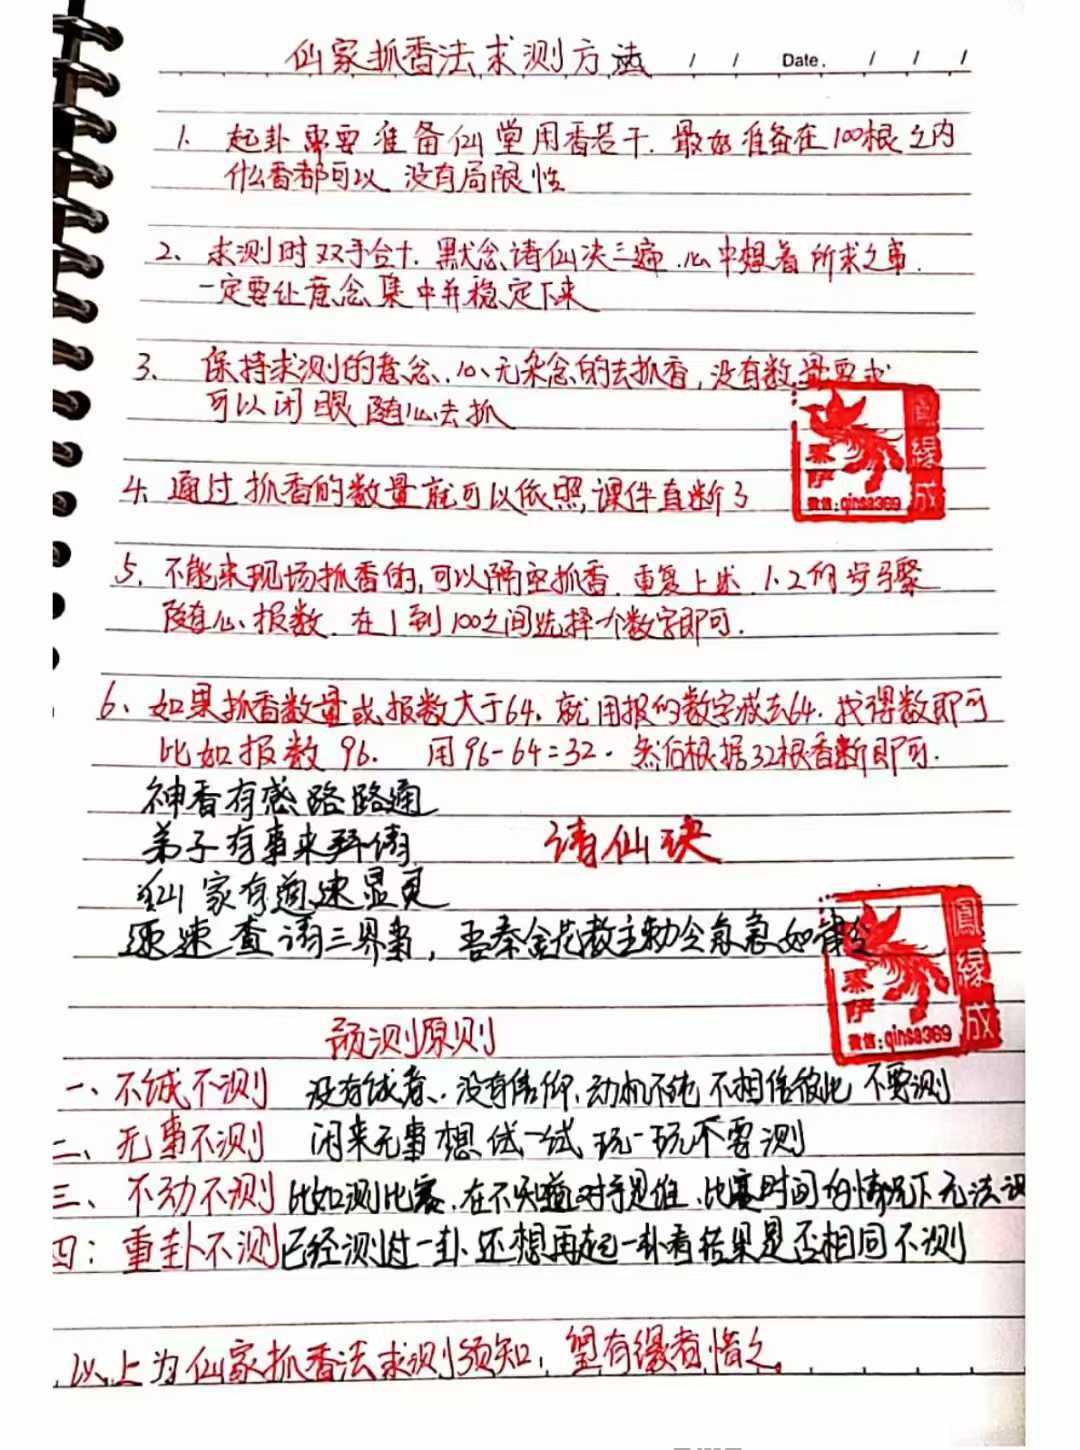 仙家抓香法求测方法 / / Date. / / /
1. 起卦需要准备仙堂用香若干. 最好准备在100根之内
什么香都可以 没有局限性
2、求测时双手合十. 默念请仙决三遍. 心中想着所求之事.
一定要让意念集中并稳定下来
3、保持求测的意念、心无杂念的去抓香, 没有数量要求
可以闭眼随心去抓
4、通过抓香的数量就可以依照课件直断了
5、不能来现场抓香的, 可以隔空抓香. 重复上述 1.2的步骤
随心、报数. 在1到100之间选择个数字即可.
6、如果抓香数量或报数大于64. 就用报的数字减去64. 找得数即可
比如报数96. 用96-64=32. 然后根据32根香断即可.
神香有感路路通
弟子有事来拜请
请仙决
仙家有道速显灵
速速查请三界事, 吾奉金花教主勅令急急如律令
预测原则
一、不诚不测 没有诚意、没有信仰、动机不纯 不相信彼此 不要测
二、无事不测 闲来无事想试一试 玩一玩不要测
三、不动不测 比如测比赛、在不知道对手是谁、比赛时间的情况下无法测
四: 重卦不测 已经测过一卦、还想再起一卦看结果是否相同不测
以上为仙家抓香法求测须知, 望有缘者惜之。
鳳緣成
秦萨
微信:qinsa369
鳳緣成
秦萨
微信:qinsa369